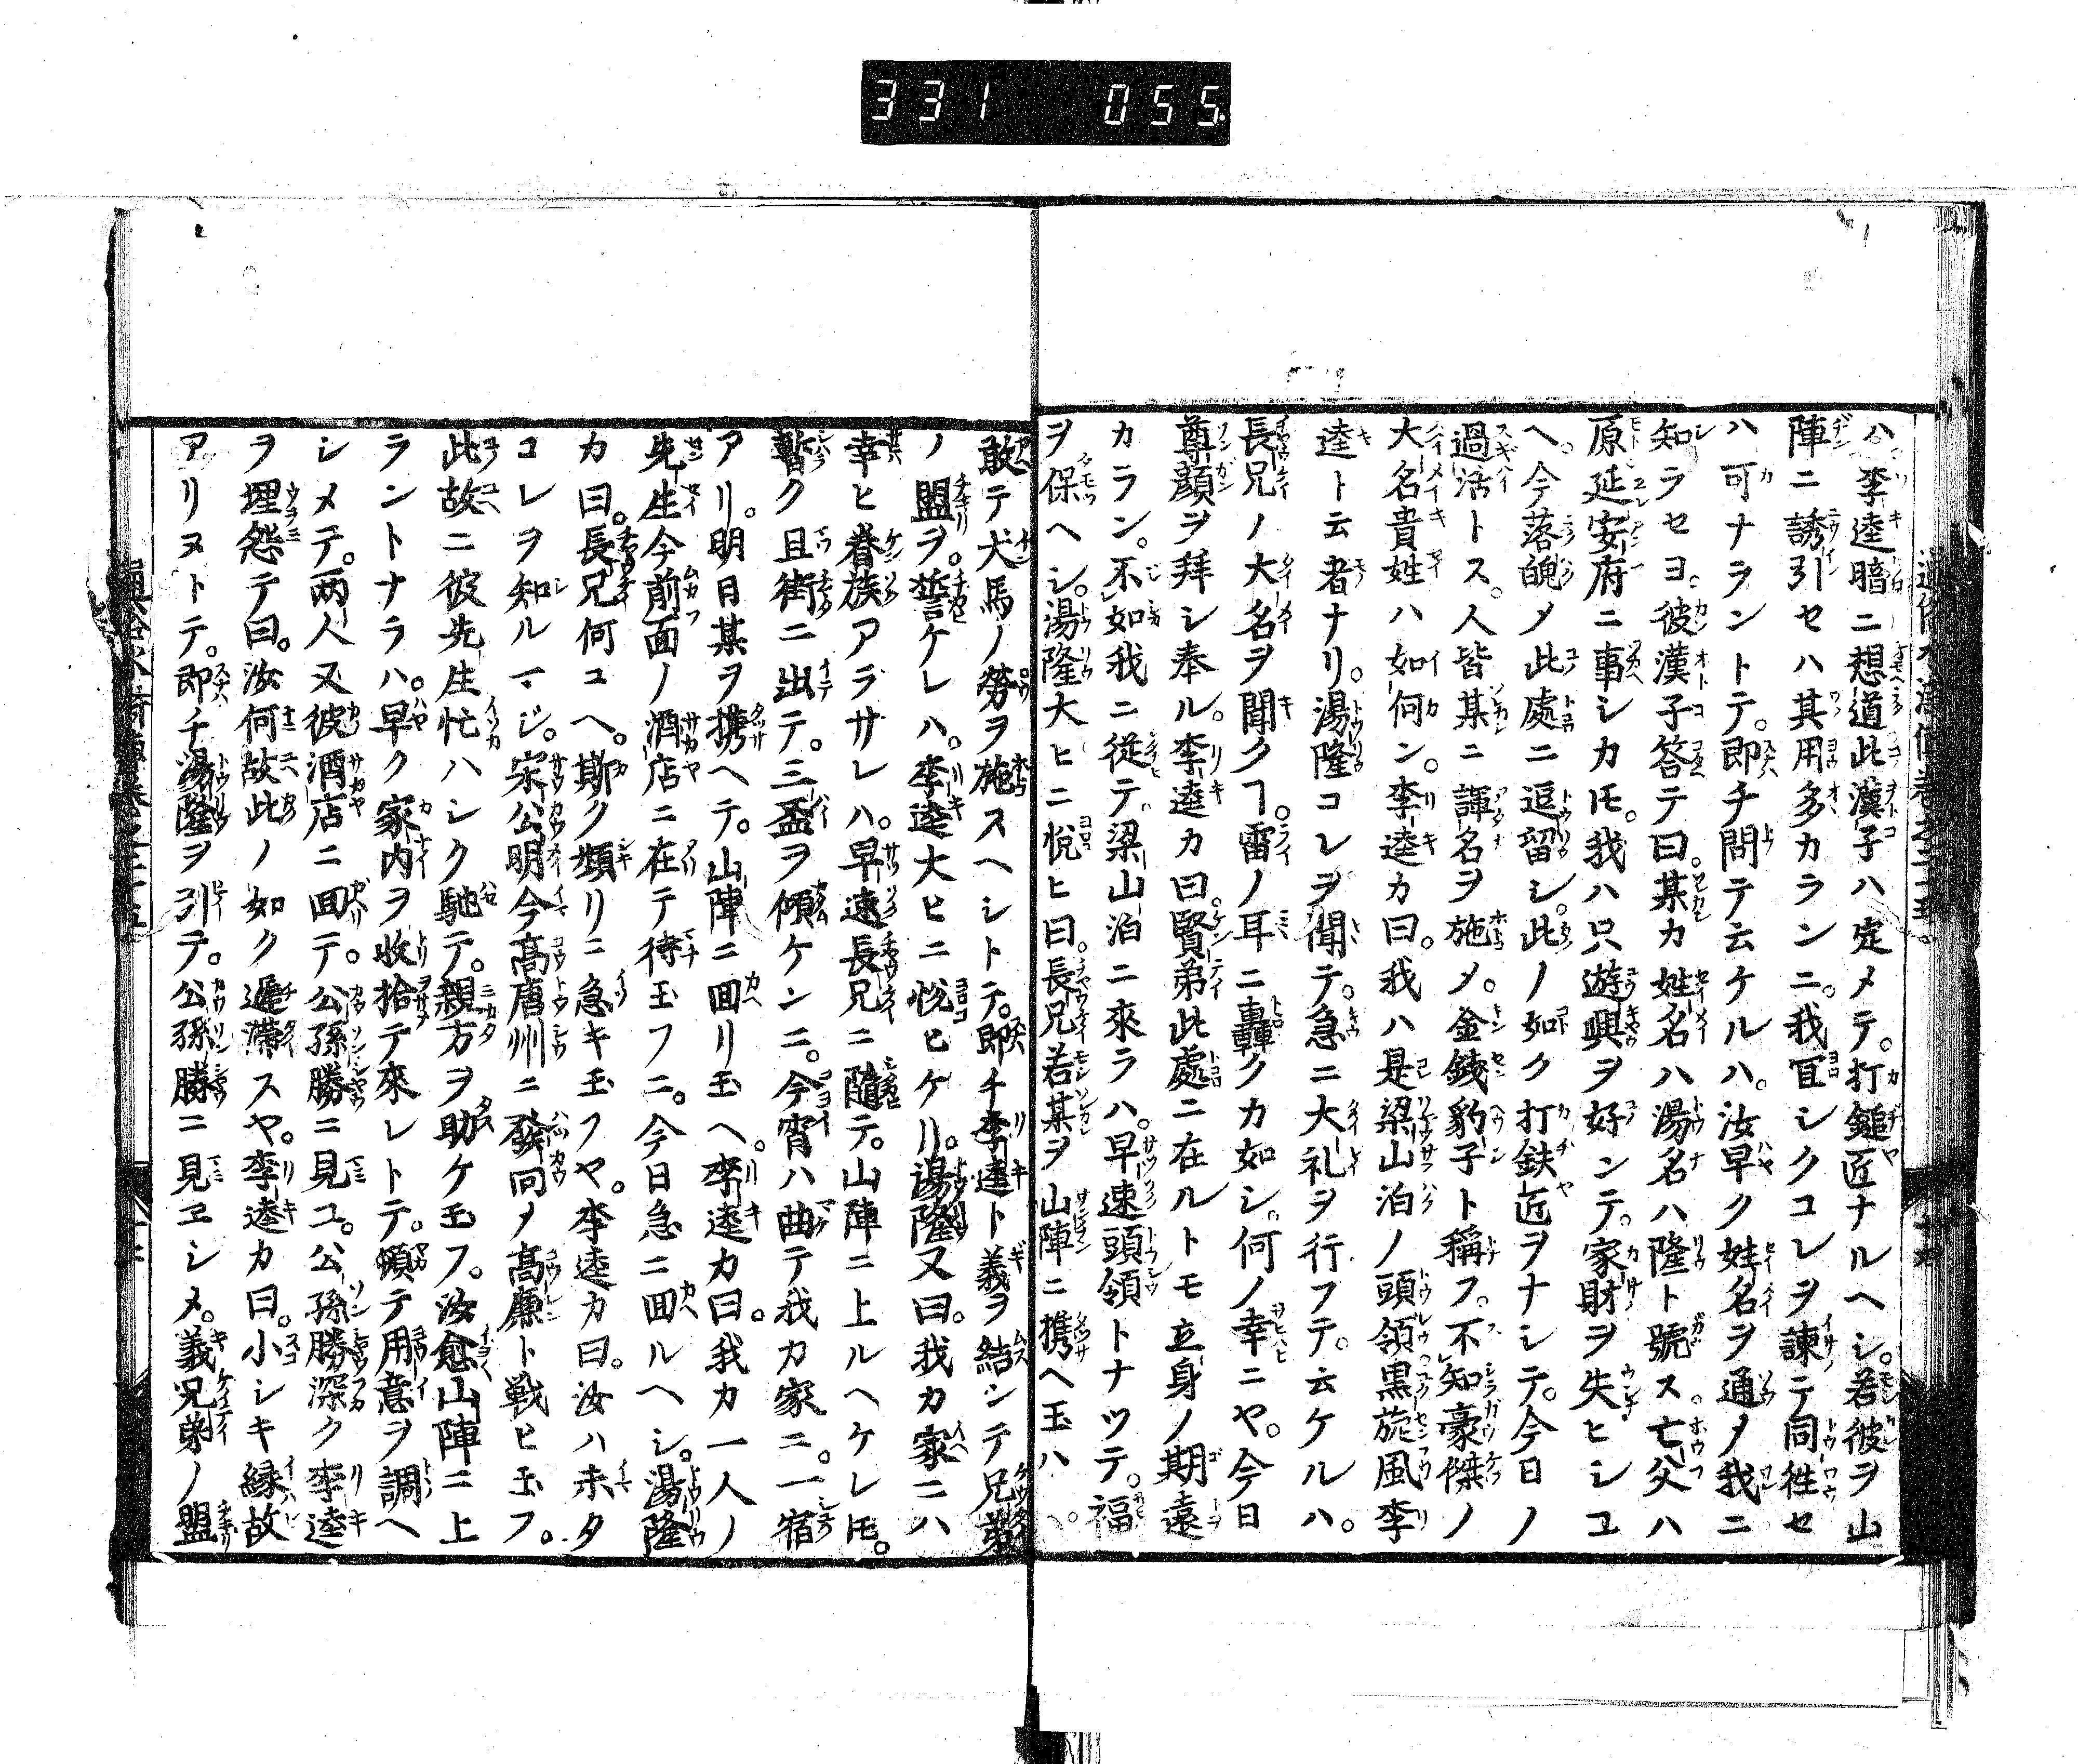 331 055
ハ。李逵暗ニ想道此漢子ハ定メテ。打鎚匠ナルヘシ。若彼ヲ山
陣ニ誘引セハ其用多カランニ。我宜シクコレヲ諫テ同徃セ
ハ可ナラントテ。即チ問テ云ケルハ。汝早ク姓名ヲ通メ我ニ
知ラセヨ。彼漢子答テ曰。某カ姓名ハ湯名ハ隆ト號ス。亡父ハ
原延安府ニ事シカ𪜈。我ハ只遊興ヲ好ンテ。家財ヲ失ヒシユ
ヘ。今落魄メ此處ニ逗留シ。此ノ如ク打鉄匠ヲナシテ。今日ノ
過活トス。人皆某ニ諢名ヲ施メ。金錢豹子ト稱フ。不知豪傑ノ
大名貴姓ハ如何ン。李逵カ曰。我ハ是梁山泊ノ頭領黒旋風李
逵ト云者ナリ。湯隆コレヲ聞テ。急ニ大礼ヲ行フテ。云ケルハ。
長兄ノ大名ヲ聞クヿ。雷ノ耳ニ轟クカ如シ。何ノ幸ニヤ。今日
尊顔ヲ拜シ奉ル。李逵カ曰。賢弟此處ニ在ルトモ立身ノ期遠
カラン。不如我ニ従テ。梁山泊ニ來ラハ。早速頭領トナツテ。福
ヲ保ヘシ。湯隆大ヒニ悦ヒ曰。長兄若某ヲ山陣ニ携ヘ玉ハ
敢テ犬馬ノ勞ヲ施スヘシトテ。即チ李逵ト義ヲ結ンテ兄弟
ノ盟ヲ。誓ケレハ。李逵大ヒニ悦ヒケリ。湯隆又曰。我カ家ニハ
幸ヒ眷族アラサレハ。早速長兄ニ隨テ。山陣ニ上ルヘケレ𪜈。
暫ク且街ニ出テ。三盃ヲ傾ケンニ。今宵ハ曲テ我カ家ニ。一宿
アリ。明日某ヲ携ヘテ。山陣ニ囬リ玉ヘ。李逵カ曰。我カ一人ノ
先生今前面ノ酒店ニ在テ待玉フニ。今日急ニ囬ルヘシ。湯隆
カ曰。長兄何ユヘ。斯ク頻リニ急キ玉フヤ。李逵カ曰。汝ハ未タ
コレヲ知ルマジ。宋公明今髙唐州ニ發向メ髙廉ト戦ヒ玉フ。
此故ニ彼先生忙ハシク馳テ。親方ヲ助ケ玉フ。汝愈山陣ニ上
ラントナラハ。早ク家内ヲ收拾テ來レトテ。頓テ用意ヲ調ヘ
シメテ。両人又彼酒店ニ囬テ。公孫勝ニ見ユ。公孫勝深ク李逵
ヲ埋怨テ曰。汝何故此ノ如ク遲滯スヤ。李逵カ曰。小シキ縁故
アリヌトテ。即チ湯隆ヲ引テ。公孫勝ニ見ヱシメ。義兄弟ノ盟